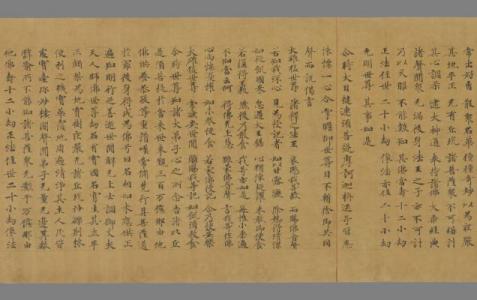 常出好香 散眾名華 種種奇妙 以為莊嚴
其地平正 無有丘坑 諸菩薩眾 不可稱計
其心調柔 逮大神通 奉持諸佛 大乘經典
諸聲聞眾 無漏後身 法王之子 亦不可計
乃以天眼 不能數知 其佛當壽 十二小劫
正法住世 二十小劫 像法亦住 二十小劫
光明世尊 其事如是
尒時大目揵連須菩提摩訶迦栴延等皆悉
悚慄一心合掌瞻仰世尊目不暫捨即共同
聲而說偈言
大雄猛世尊 諸釋之法王 哀愍我等故 而賜佛音聲
若知我深心 見為授記者 如以甘露灑 除熱得清涼
如從飢國來 忽遇大王饍 心猶懷疑懼 未敢即便食
若復得王教 然後乃敢食 我等亦如是 每惟小乘過
不知當云何 得佛無上慧 雖聞佛音聲 言我等作佛
心尚懷憂懼 如未敢便食 若蒙佛授記 尒乃快安樂
大雄猛世尊 常欲安世間 願賜我等記 如飢須教食
尒時世尊知諸大弟子心之所念告諸比丘
是須菩提於當來世奉覲三百萬億那由他
佛供養恭敬尊重讚歎常修梵行具菩薩道
於最後身得成為佛号曰名相如來應供正
遍知明行足善逝世間解無上士調御丈夫
天人師佛世尊劫名有寶國名寶生其土平
正頗梨為地寶樹莊嚴無諸丘坑沙礫荊棘
便利之穢寶華覆地周遍清淨其土人民皆
處寶臺珍妙樓閣聲聞弟子無量無邊算數
譬喻所不能知諸菩薩眾無數千萬億那由
他佛壽十二小劫正法住世二十小劫像法